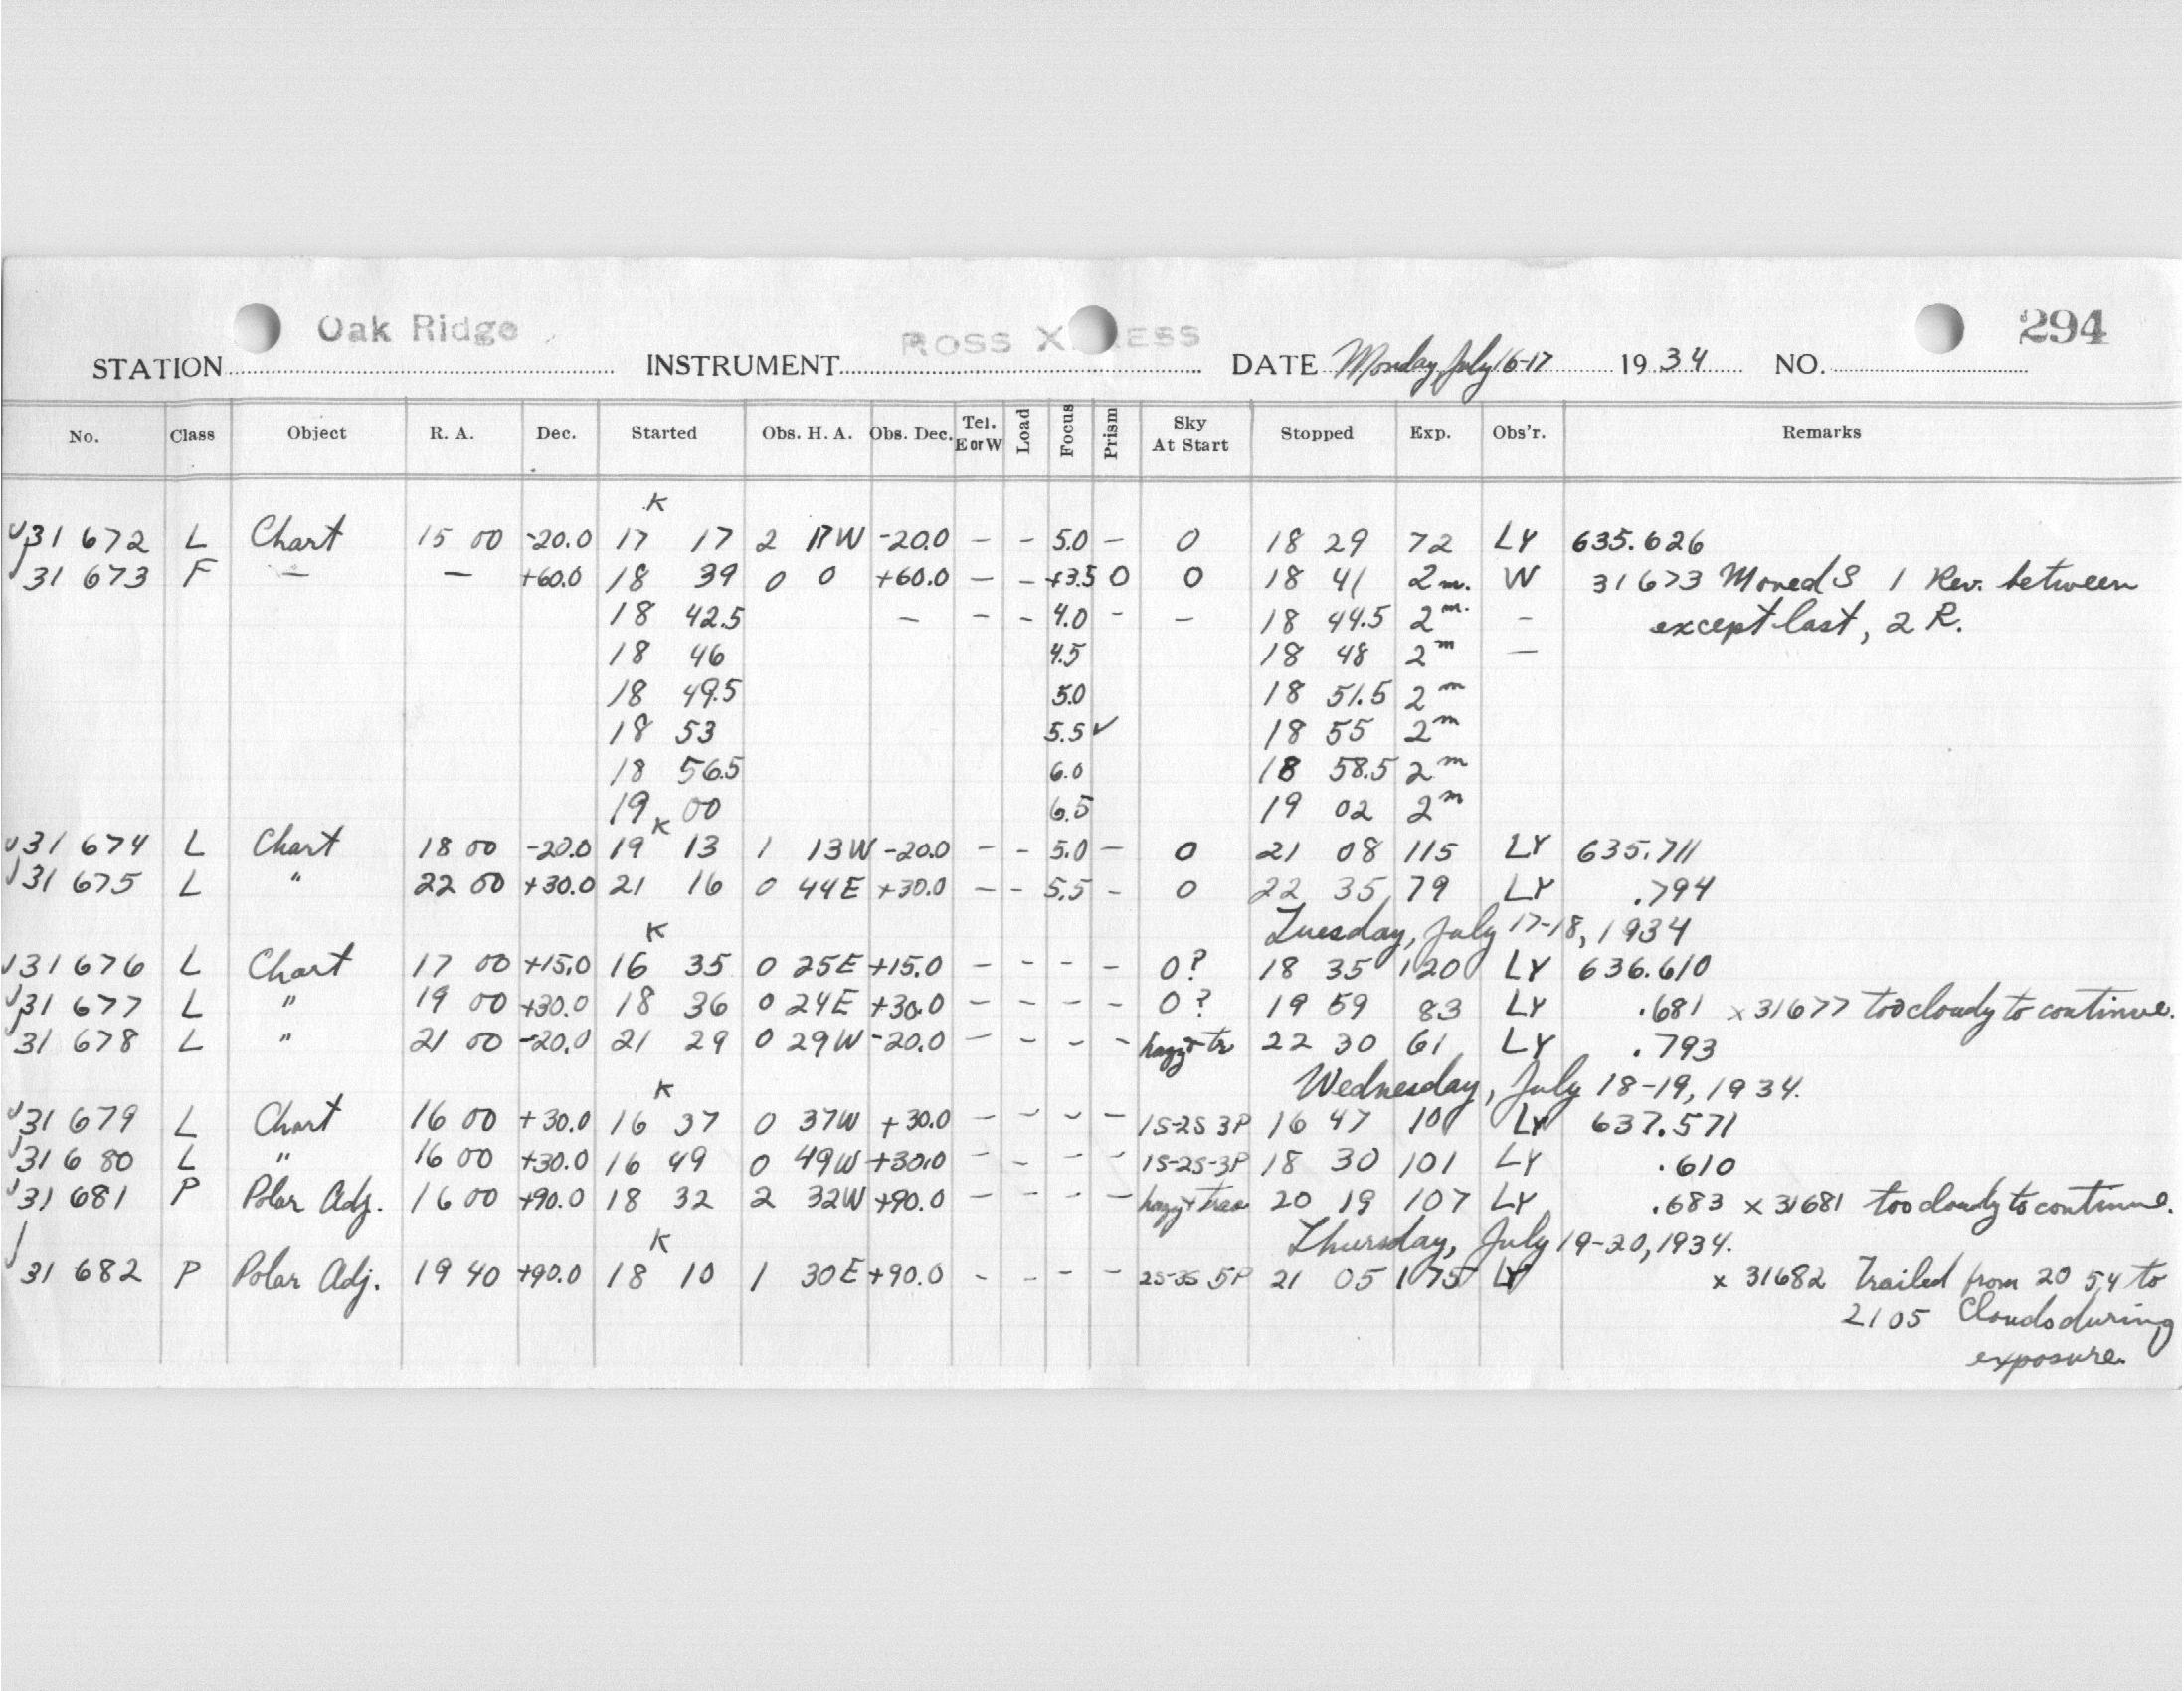 Oak Ridge ROSS X ESS 294
STATION INSTRUMENT DATE Monday, July 16-17 1934 NO.
No. Class Object R. A. Dec. Started Obs. H. A. Obs. Dec. Tel. E or W Load Focus Prism Sky At Start Stopped Exp. Obs'r. Remarks
K
31 672 L Chart 15 00 -20.0 17 17 2 17W -20.0 - - 5.0 - 0 18 29 72 LY 635.626
31 673 F - - +60.0 18 39 0 0 +60.0 - - +3.5 0 0 18 41 2m. W 31673 Moved S 1 Rev. between
18 42.5 - - - 4.0 - - 18 44.5 2m. - except last, 2 R.
18 46 4.5 18 48 2m -
18 49.5 5.0 18 51.5 2m
18 53 5.5 ✓ 18 55 2m
18 56.5 6.0 18 58.5 2m
19 00 6.5 19 02 2m
K
31 674 L Chart 18 00 -20.0 19 13 1 13W -20.0 - - 5.0 - 0 21 08 115 LY 635.711
31 675 L " 22 00 +30.0 21 16 0 44E +30.0 - - 5.5 - 0 22 35 79 LY .794
K Tuesday, July 17-18, 1934
31 676 L Chart 17 00 +15.0 16 35 0 25E +15.0 - - - - 0? 18 35 120 LY 636.610
31 677 L " 19 00 +30.0 18 36 0 24E +30.0 - - - - 0? 19 59 83 LY .681 x 31677 too cloudy to continue.
31 678 L " 21 00 -20.0 21 29 0 29W -20.0 - - - - hazy + tr 22 30 61 LY .793
K Wednesday, July 18-19, 1934.
31 679 L Chart 16 00 +30.0 16 37 0 37W +30.0 - - - - 1S-2S 3P 16 47 10 LY 637.571
31 680 L " 16 00 +30.0 16 49 0 49W +30.0 - - - - 1S-2S-3P 18 30 101 LY .610
31 681 P Polar Adj. 16 00 +90.0 18 32 2 32W +90.0 - - - - hazy + 20 19 107 LY .683 x 31681 too cloudy to continue.
K Thursday, July 19-20, 1934.
31 682 P Polar Adj. 19 40 +90.0 18 10 1 30E +90.0 - - - - 2S-3S 5P 21 05 175 LY x 31682 Trailed from 20 54 to
21 05 Clouds during
exposure.